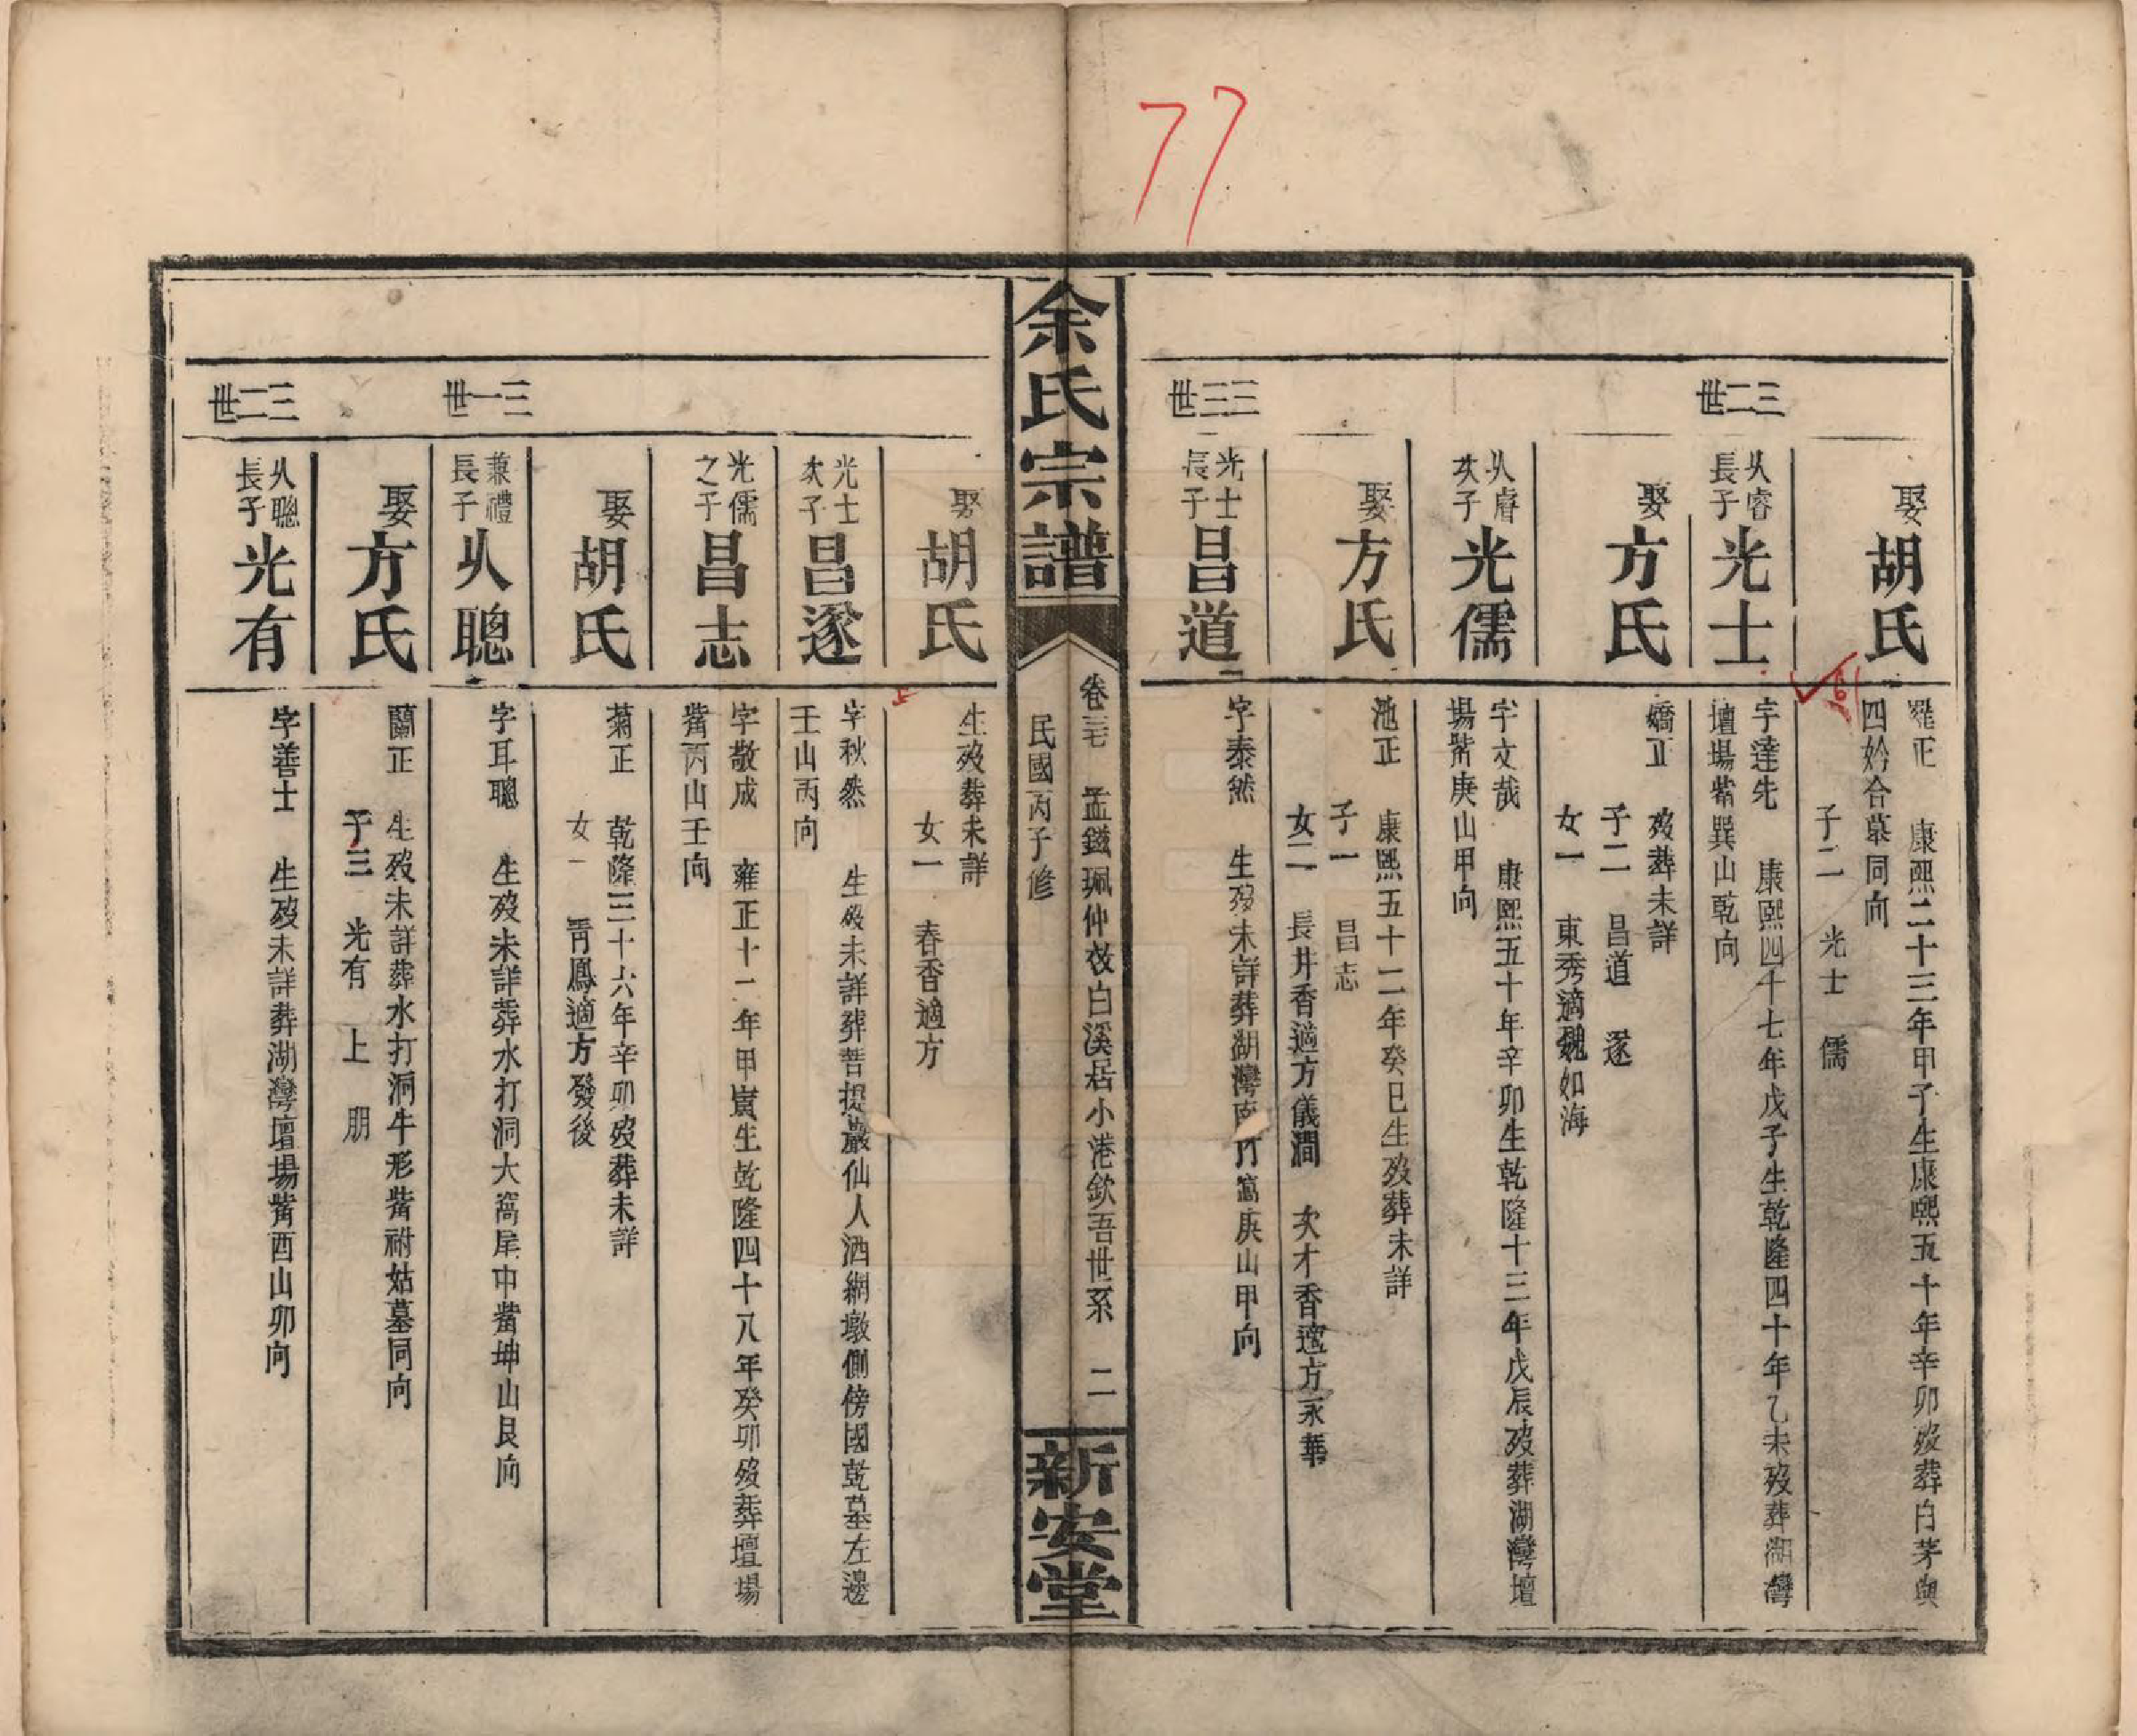 77
娶
胡氏
耀正 康熙二十三年甲子生康熙五十年辛卯歿葬白茅與
四妗合墓同向
子二 光士 儒
三二世
从睿
長子
光士
字達先 康熙四十七年戊子生乾隆四十年乙未歿葬湖灣
壇場嘴巽山乾向
娶
方氏
嬌正 歿葬未詳
子二 昌道 遂
女一 東秀適魏如海
从睿
次子
光儒
字文哉 康熙五十年辛卯生乾隆十三年戊辰歿葬湖灣壇
場嘴庚山甲向
娶
方氏
池正 康熙五十二年癸巳生歿葬未詳
子一 昌志
女二 長井香適方儀潤 次才香適方永華
三三世
光士
長子
昌道
字泰然 生歿未詳葬湖灣南竹窩庚山甲向
余氏宗譜
卷三七 孟鎡珮仲敔白溪居小港欽吾世系 二
民國丙子修
新安堂
娶
胡氏
生歿葬未詳
女一 春香適方
光士
次子
昌遂
字秋然 生歿未詳葬菩提巖仙人洒網墩側傍國乾墓左邊
壬山丙向
光儒
之子
昌志
字敬成 雍正十二年甲寅生乾隆四十八年癸卯歿葬壇場
嘴丙山壬向
娶
胡氏
菊正 乾隆三十六年辛卯歿葬未詳
女一 青鳳適方發後
三一世
兼禮
長子
从聰
字耳聰 生歿未詳葬水打洞大窩屋中嘴坤山艮向
娶
方氏
蘭正 生歿未詳葬水打洞牛形嘴祔姑墓同向
子三 光有 上 朋
三二世
从聰
長子
光有
字善士 生歿未詳葬湖灣壇場嘴酉山卯向